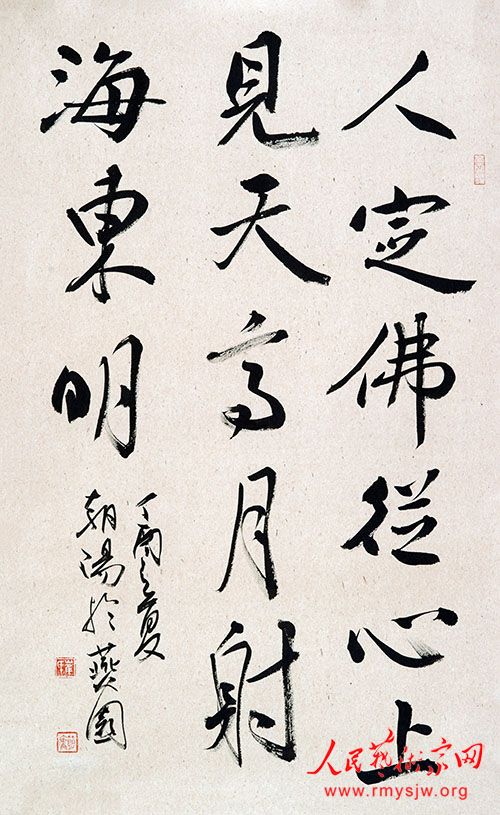 人定佛從心上
見天高月射
海東明
丁酉之夏
朝陽於燕園
人民藝術家网
www.rmysjw.org